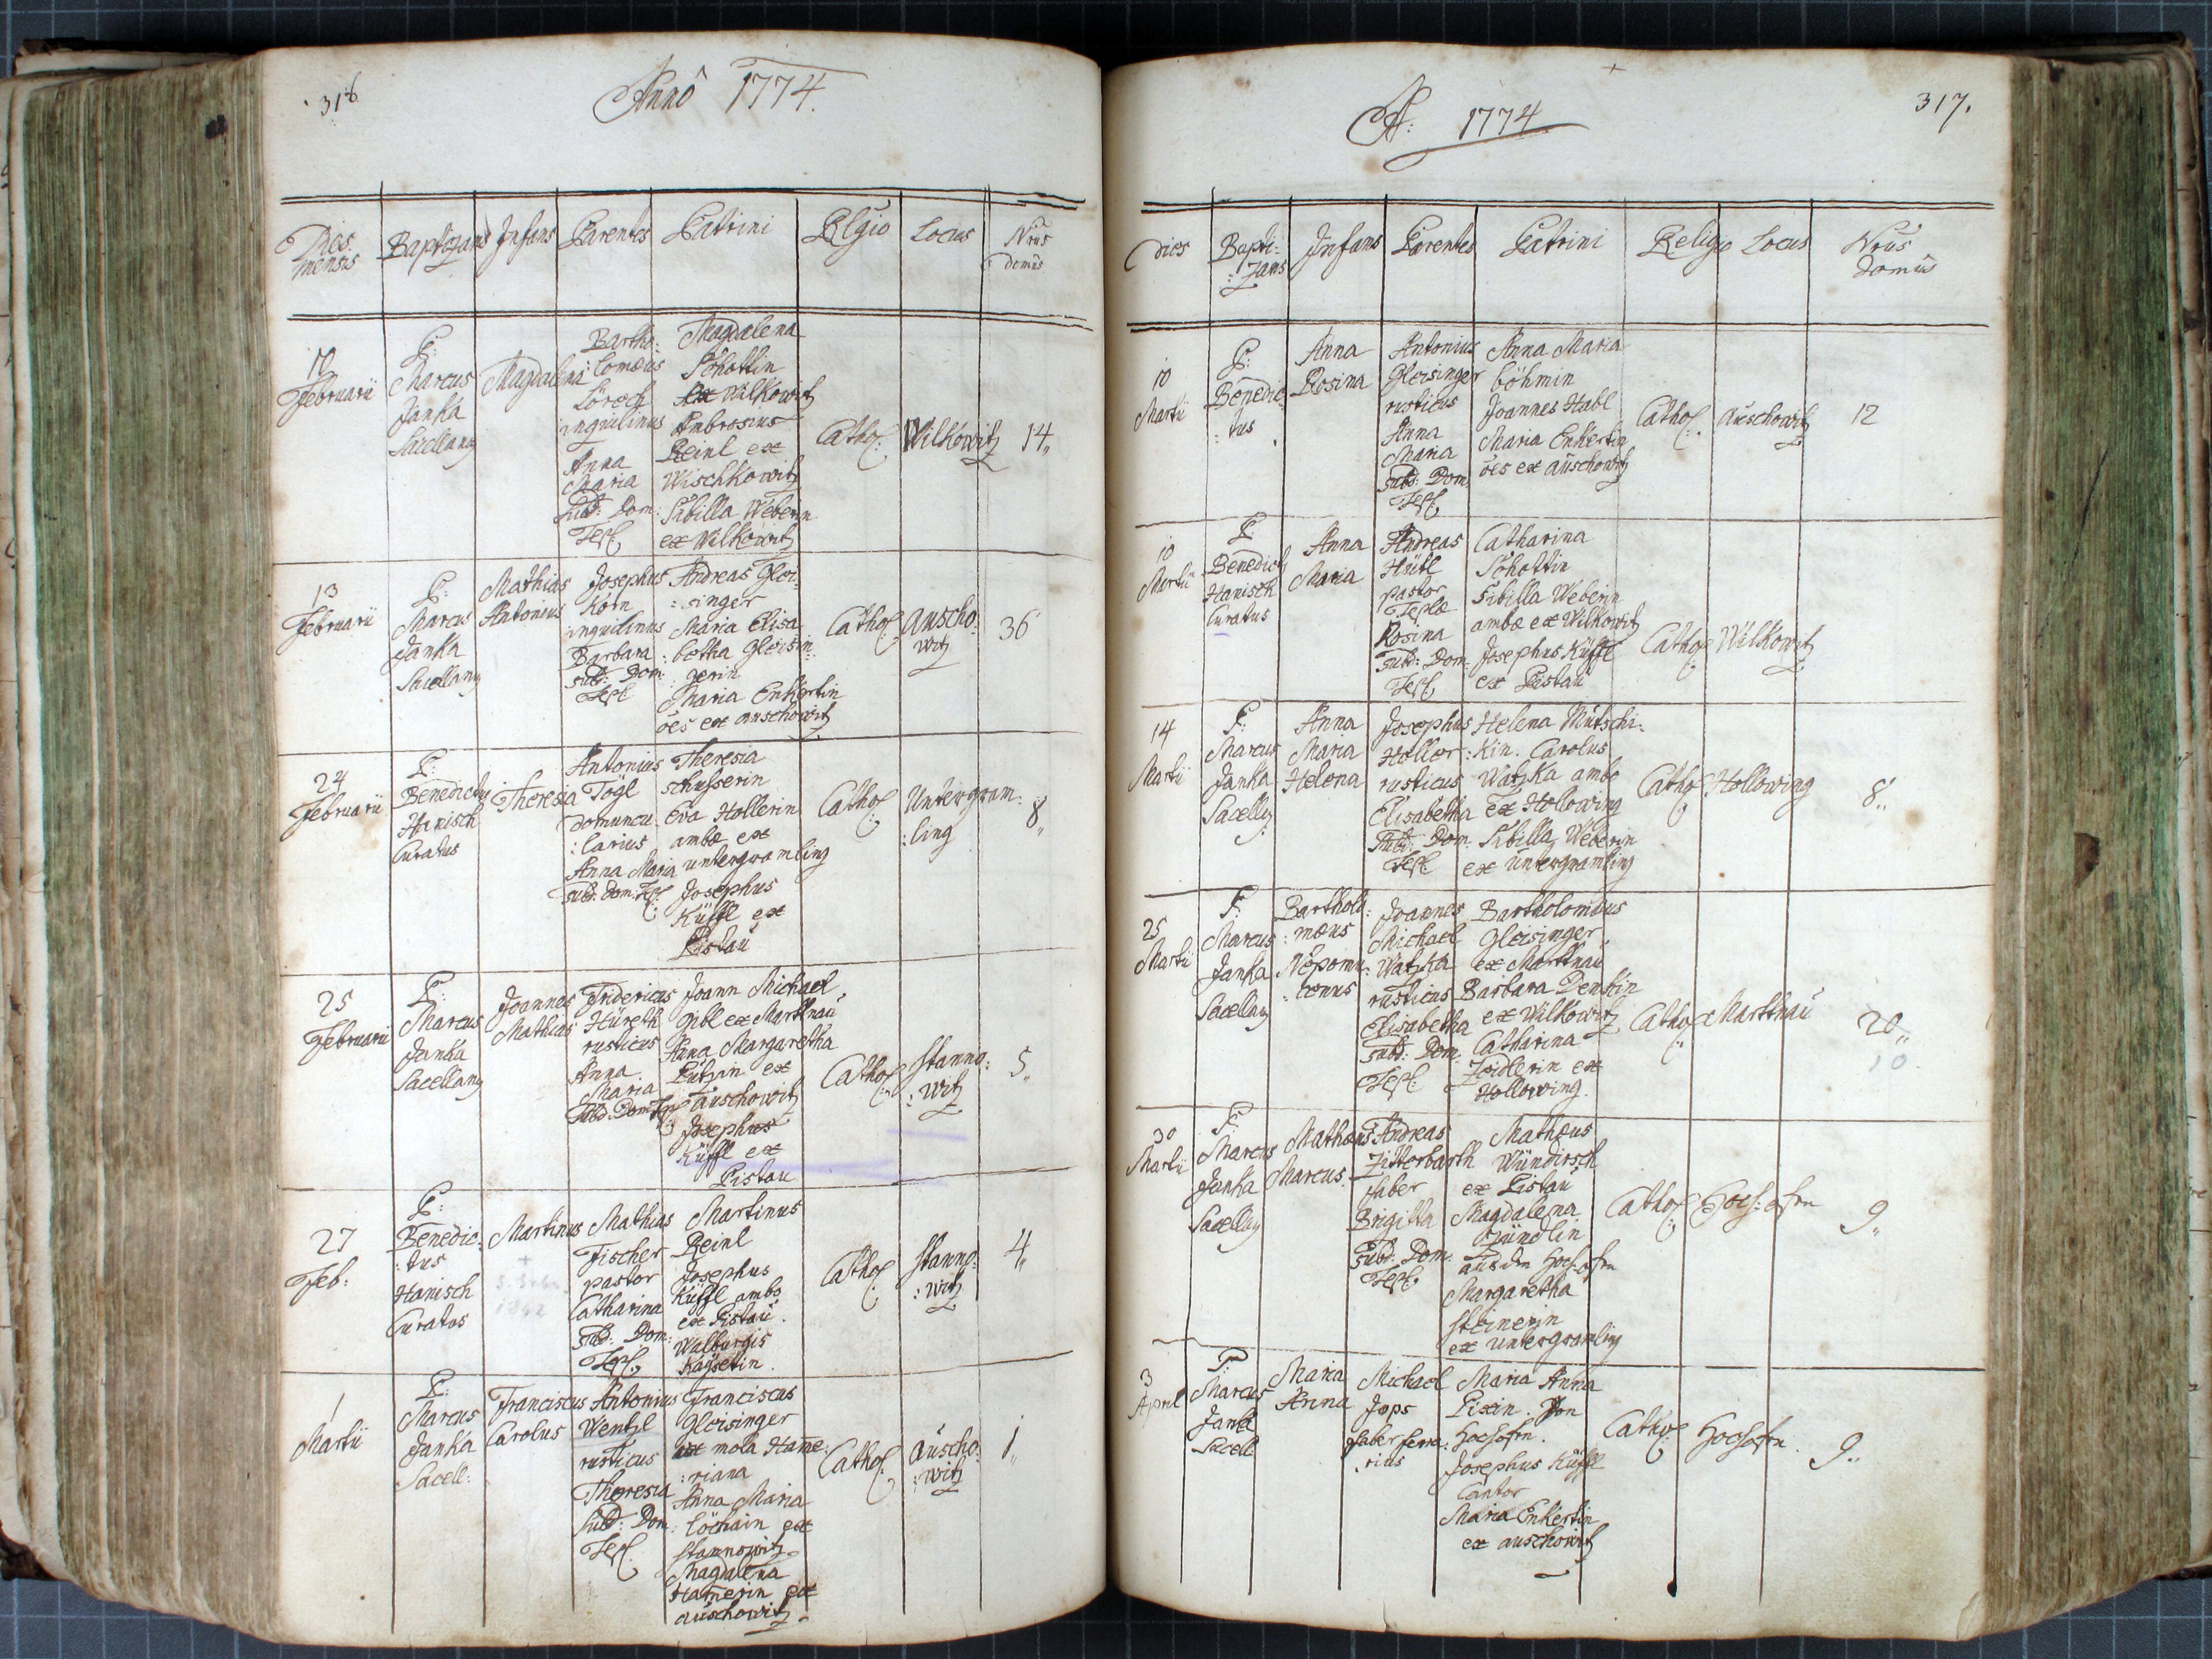 316
Annô 1774.
Dies mensis
Baptizans
Infans
Parentes
Patrini
Relgio
Locus
Nrus domûs
Februarii
P:
Marcus
Janka
Sacellang
Magdalena
Bartho:
lomæus
Löroch
inquilinus
Anna
Maria
Subd: Dom:
Tepl
Magdalena
Schottin
ex Wilkowitz
Ambrosius
Reinl ex
Wischkowitz
Sibilla Weberin
ex Wilkowitz
Cathol:
Wilkowitz
14„
13
Februarii
P:
Marcus
Janka
Sacellang
Mathias
Antonius
Josephus
Korn
inquilinus
Barbara
subd: Dom:
Tepl
Andreas Glei-
:singer
Maria Elisa
:betha Gleisin:
gerin
Maria Enkertin
oes ex auschowitz
Cathol:
auscho:
witz
36
24
Februarii
P:
Benedictus
Hanisch
Curatus
Theresia
Antonius
Tögl
domuncu
:larius
Anna Maria
subd. Dom. Tepl
Theresia
schusserin
Eva Hollerin
ambæ ex
untergramling
Josephus
Küffl ex
Pistau
Cathol:
Untergram:
:ling
8„
25
Februarii
P:
Marcus
Janka
Sacellang
Joannes
Mathias
Fridericus
Hüreth
rusticus
Anna
Maria
Subd: Dom Tepl
Joann Michael
Gibl ex Martnau
Anna Margaretha
Pützin ex
auschowitz
Josephus
Küffl ex
Pistau
Cathol:
Stanno:
:witz
5„
27
Feb:
P:
Benedic:
:tus
Hanisch
Curatus
Martinus
Mathias
Fischer
pastor
Catharina
Subd: Dom:
Tepl
Martinus
Reinl
Josephus
Küffl ambo
ex Pistau.
Walburgis
Kaÿserin.
Cathol:
Stanno:
:witz
4„
1
Martii
P:
Marcus
Janka
Sacell:
Franciscus
Carolus
Antonius
Wentzl
rusticus
Theresia
Subd: Dom:
Tepl
Franciscus
Gleisinger
ex mola Hame:
:riana
Anna Maria
Löchain ex
stannowitz
Magdalena
Hamerin ex
auschowitz
Cathol:
auscho:
:witz
1„
317.
A: 1774
Dies
Bapti-
:zans
Infans
Parentes
Patrini
Religio
Locus
Nrus
domûs
10
Martii
P:
Benedic:
:tus
Anna
Rosina
Antonius
Gleisinger
rusticus
Anna
Maria
subd: Dom
Tepl
Anna Maria
böhmin
Joannes Habl
Maria Enkertin
oes ex auschowitz
Cathol:
auschowitz
12
10
Martii
P:
Benedict
Hanisch
Curatus
Anna
Maria
Andreas
Hütl
pastor
Teplæ
Rosina
subd: Dom:
Tepl
Catharina
Schottin
Sibilla Weberin
ambæ ex Wilkowitz
Josephus Küffl
ex Pistau
Cathol
Wilkowitz
14
Martii
P:
Marcus
Janka
Sacellg
Anna
Maria
Helena
Josephus
Holler
rusticus
Elisabetha
Subd: Dom.
Tepl
Helena Mutschi:
:kin. Carolus
Watzka ambo
ex Hollowing
Sibilla Weberin
ex Untergramling
Cathol
Hollowing
8„
25
Martii
P:
Marcus
Janka
Sacellang
Bartholo:
:mæus
Nepomu:
:cenus
Joannes
Michael
Watzka
rusticus
Elisabetha
subd: Dom.
Tepl
Bartholomæus
Gleisinger
ex Martnau
Barbara Denkin
ex Wilkowitz
Catharina
Zeidlerin ex
Hollowing.
Cathol
Martnau
20„
10
30
Martii
P:
Marcus
Janka
Sacellg
Mathæus
Marcus
Andreas
Zitterbarth
faber
Brigitta
subd: Dom.
Tepl
Matheus
Wündirsch
ex Pistau
Magdalena
Gündlin
aus den Hochofen
Margaretha
steinerin
ex untergramling
Cathol
Hoch-ofen
9„
3
April
P:
Marcus
Janka
Sacell
Maria
Anna
Michael
Jops
faber ferra:
rius
Maria Anna
Pixin. Von
Hochofen.
Josephus Küffl
Cantor
Maria Enkertin
ex auschowitz
Cathol
Hochofen.
9„